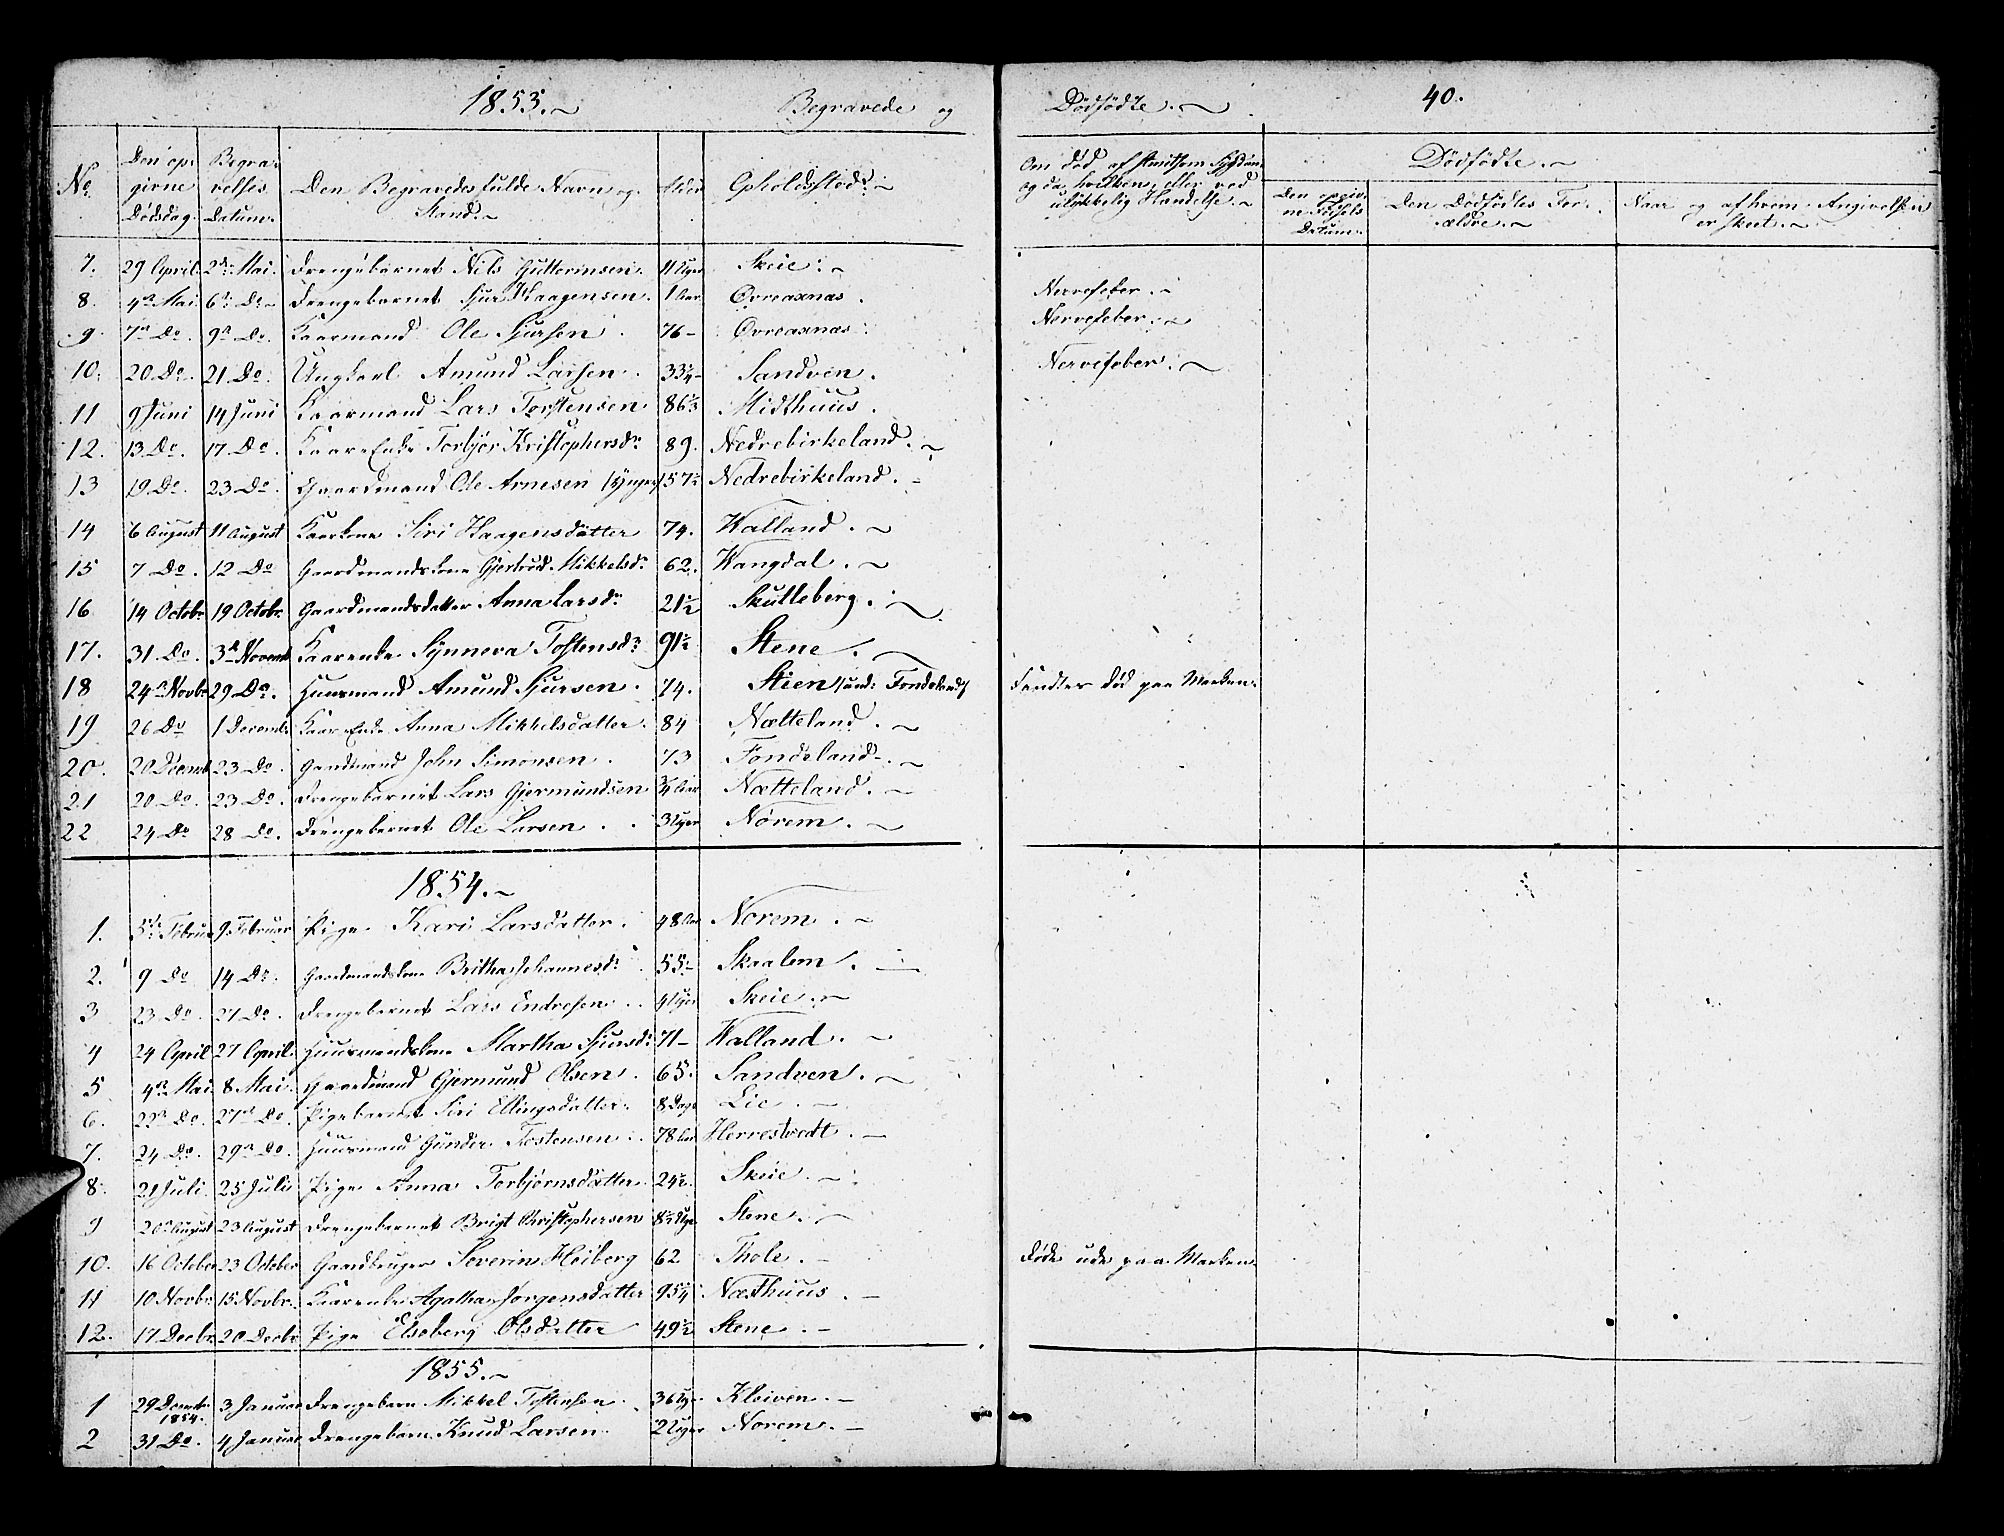 1853. Begravede og Dødfødte. 40.
No. Den opgivne Dødsdag. Begravelses Datum. Den Begravedes fulde Navn og Stand. Alder Opholdssted. Om død af smitsom Sygdom og da hvilken, eller ved ulykkelig Hændelse. Dødfødte.
Den opgivne Fødsels Datum. Den Dødfødtes Forældre. Naar og af hvem Angivelsen er skeet.
7. 29 April. 2den Mai. Drengebarnet Nils Guttormsen. 11 Uger Skeie.
8. 4de Mai 6te Do Drengebarnet Sjur Haagensen. 1 Aar Øvreaxnæs. Nervefeber.
9. 7de Do 9de Do. Kaarmand Ole Sjursen. 76 Øvreaxnæs. Nervefeber.
10. 20 Do. 21. Do. Ungkarl Amund Larsen. 33 1/4 Sandven. Nervefeber.
11 9 Juni 14 Juni Kaarmand Lars Torstensen 86 1/3 Midthuus.
12. 13 Do. 17. Do. Kaar Enke Torbjør Kristophersdr 89. Nedrebirkeland.
13 19 Do. 23 Do Gaardmand Ole Arnesen (yngre) 57 1/2 Nedrebirkeland.
14 6 August 11 August Kaarkone Siri Haagensdatter 74. Walland.
15 7 Do. 12 Do Gaardmandskone Gjertrud Mikkelsdr 62. Wangdal.
16 14 Octobr 19 Octobr. Gaardmandsdatter Anna Larsdr 21 1/2 Skutleberg.
17. 31. Do. 3de Novemb Kaarenke Synneva Tostensdr. 91 1/2 Stene.
18 24de Novbr 29 Do. Huusmand Amund Sjursen. 74. Stien (und: Fondeland) Fandtes død paa Marken.
19 26 Do 1 Decembr Kaar Enke Anna Mikkelsdatter. 84 Nætteland.
20. 20 Decemb 23 Do. Gardmand John Simonsen. 73 Fondeland.
21 20 Do. 23 Do. Drengebarnet Lars Gjermundsen 3/4 Aar Nætteland.
22 24 Do 28 Do. Drengebarnet Ole Larsen. 3 Uger Norem.
1854.
1. 5te Februar 9 Februar Pige Kari Larsdatter. 48 Aar Norem.
2. 9 Do 14 Do. Gaardmandskone Britha Johannesdr 55 Skaalem.
3 23 Do. 27 Do. Drengebarnet Lars Endresen. 4 Uger Skeie.
4 24 April 27 April. Huusmandskone Martha Sjursdr 71 Walland.
5 4de Mai 8. Mai. Gaardmand Gjermund Olsen. 65. Sandven.
6. 22de Do. 27de Do Pigebarnet Siri Ellingsdatter. 8 Dage Lie.
7. 24 Do. 29de Do. Huusmand Gunder Tostensen. 78 Aar Herrestvedt.
8. 21 Juli. 25 Juli Pige Anna Torbjørnsdatter 24 1/2. Skeie.
9 20de August 23 August Drengebarnet Brigt Christophersen 8 1/2 Uge Stene.
10. 16 October 23 October Gaardbruger Severin Heiberg 62 Thole. Døde ude paa Marken.
11 10 Novbr. 15 Novbr. Kaarenke Agatha Jørgensdatter 95 1/4 Næsthuus.
12. 17 Decbr. 20 Decbr. Pige Elseberg Olsdatter 49 1/2 Stene.
1855.
1 29 Decmbr 1854. 3 Januar Drengebarn Mikkel Tostensen. 36 Uger Kleiven.
2 31 Do. 4 Januar Drengebarn Knud Larsen. 2 Uger Norem.